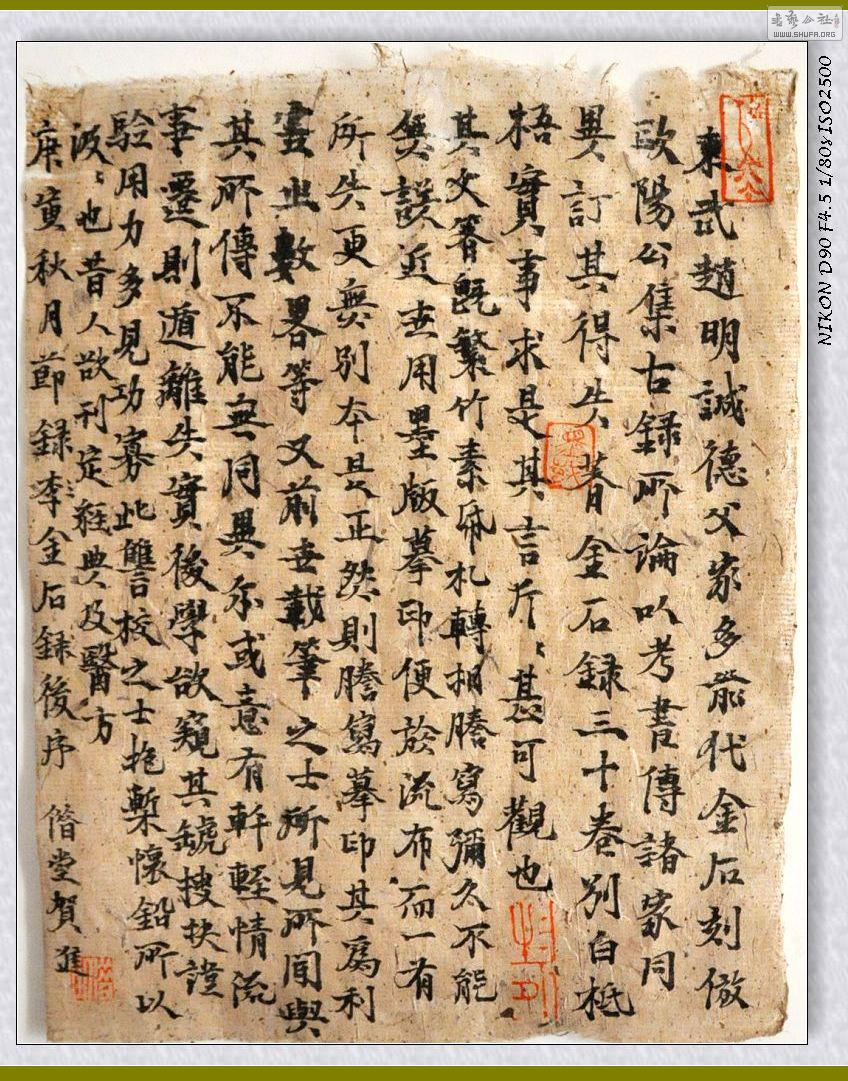 東武趙明誠德父家多前代金石刻倣
歐陽公集古錄所論以考書傳諸家同
異訂其得失著金石錄三十卷別白牴
梧實事求是其言斤〻甚可觀也
其文著既繁竹素紙札轉相謄寫彌久不能
無誤近世用墨版摹印便於流布而一有
所失更無別本是正然則謄寫摹印其為利
害之數畧等又前世載筆之士所見所聞與
其所傳不能無同異亦或意有軒輊情流
事遷則遁離失實後學欲窺其罅搜抉證
驗用力多見功寡此讐校之士抱槧懷鉛所以
汲〻也昔人欲刊定經典及醫方
庚寅秋月節錄李金石錄後序 偕堂賀進
書藝公社
WWW.SHUFA.ORG
NIKON D90 F4.5 1/80s ISO2500